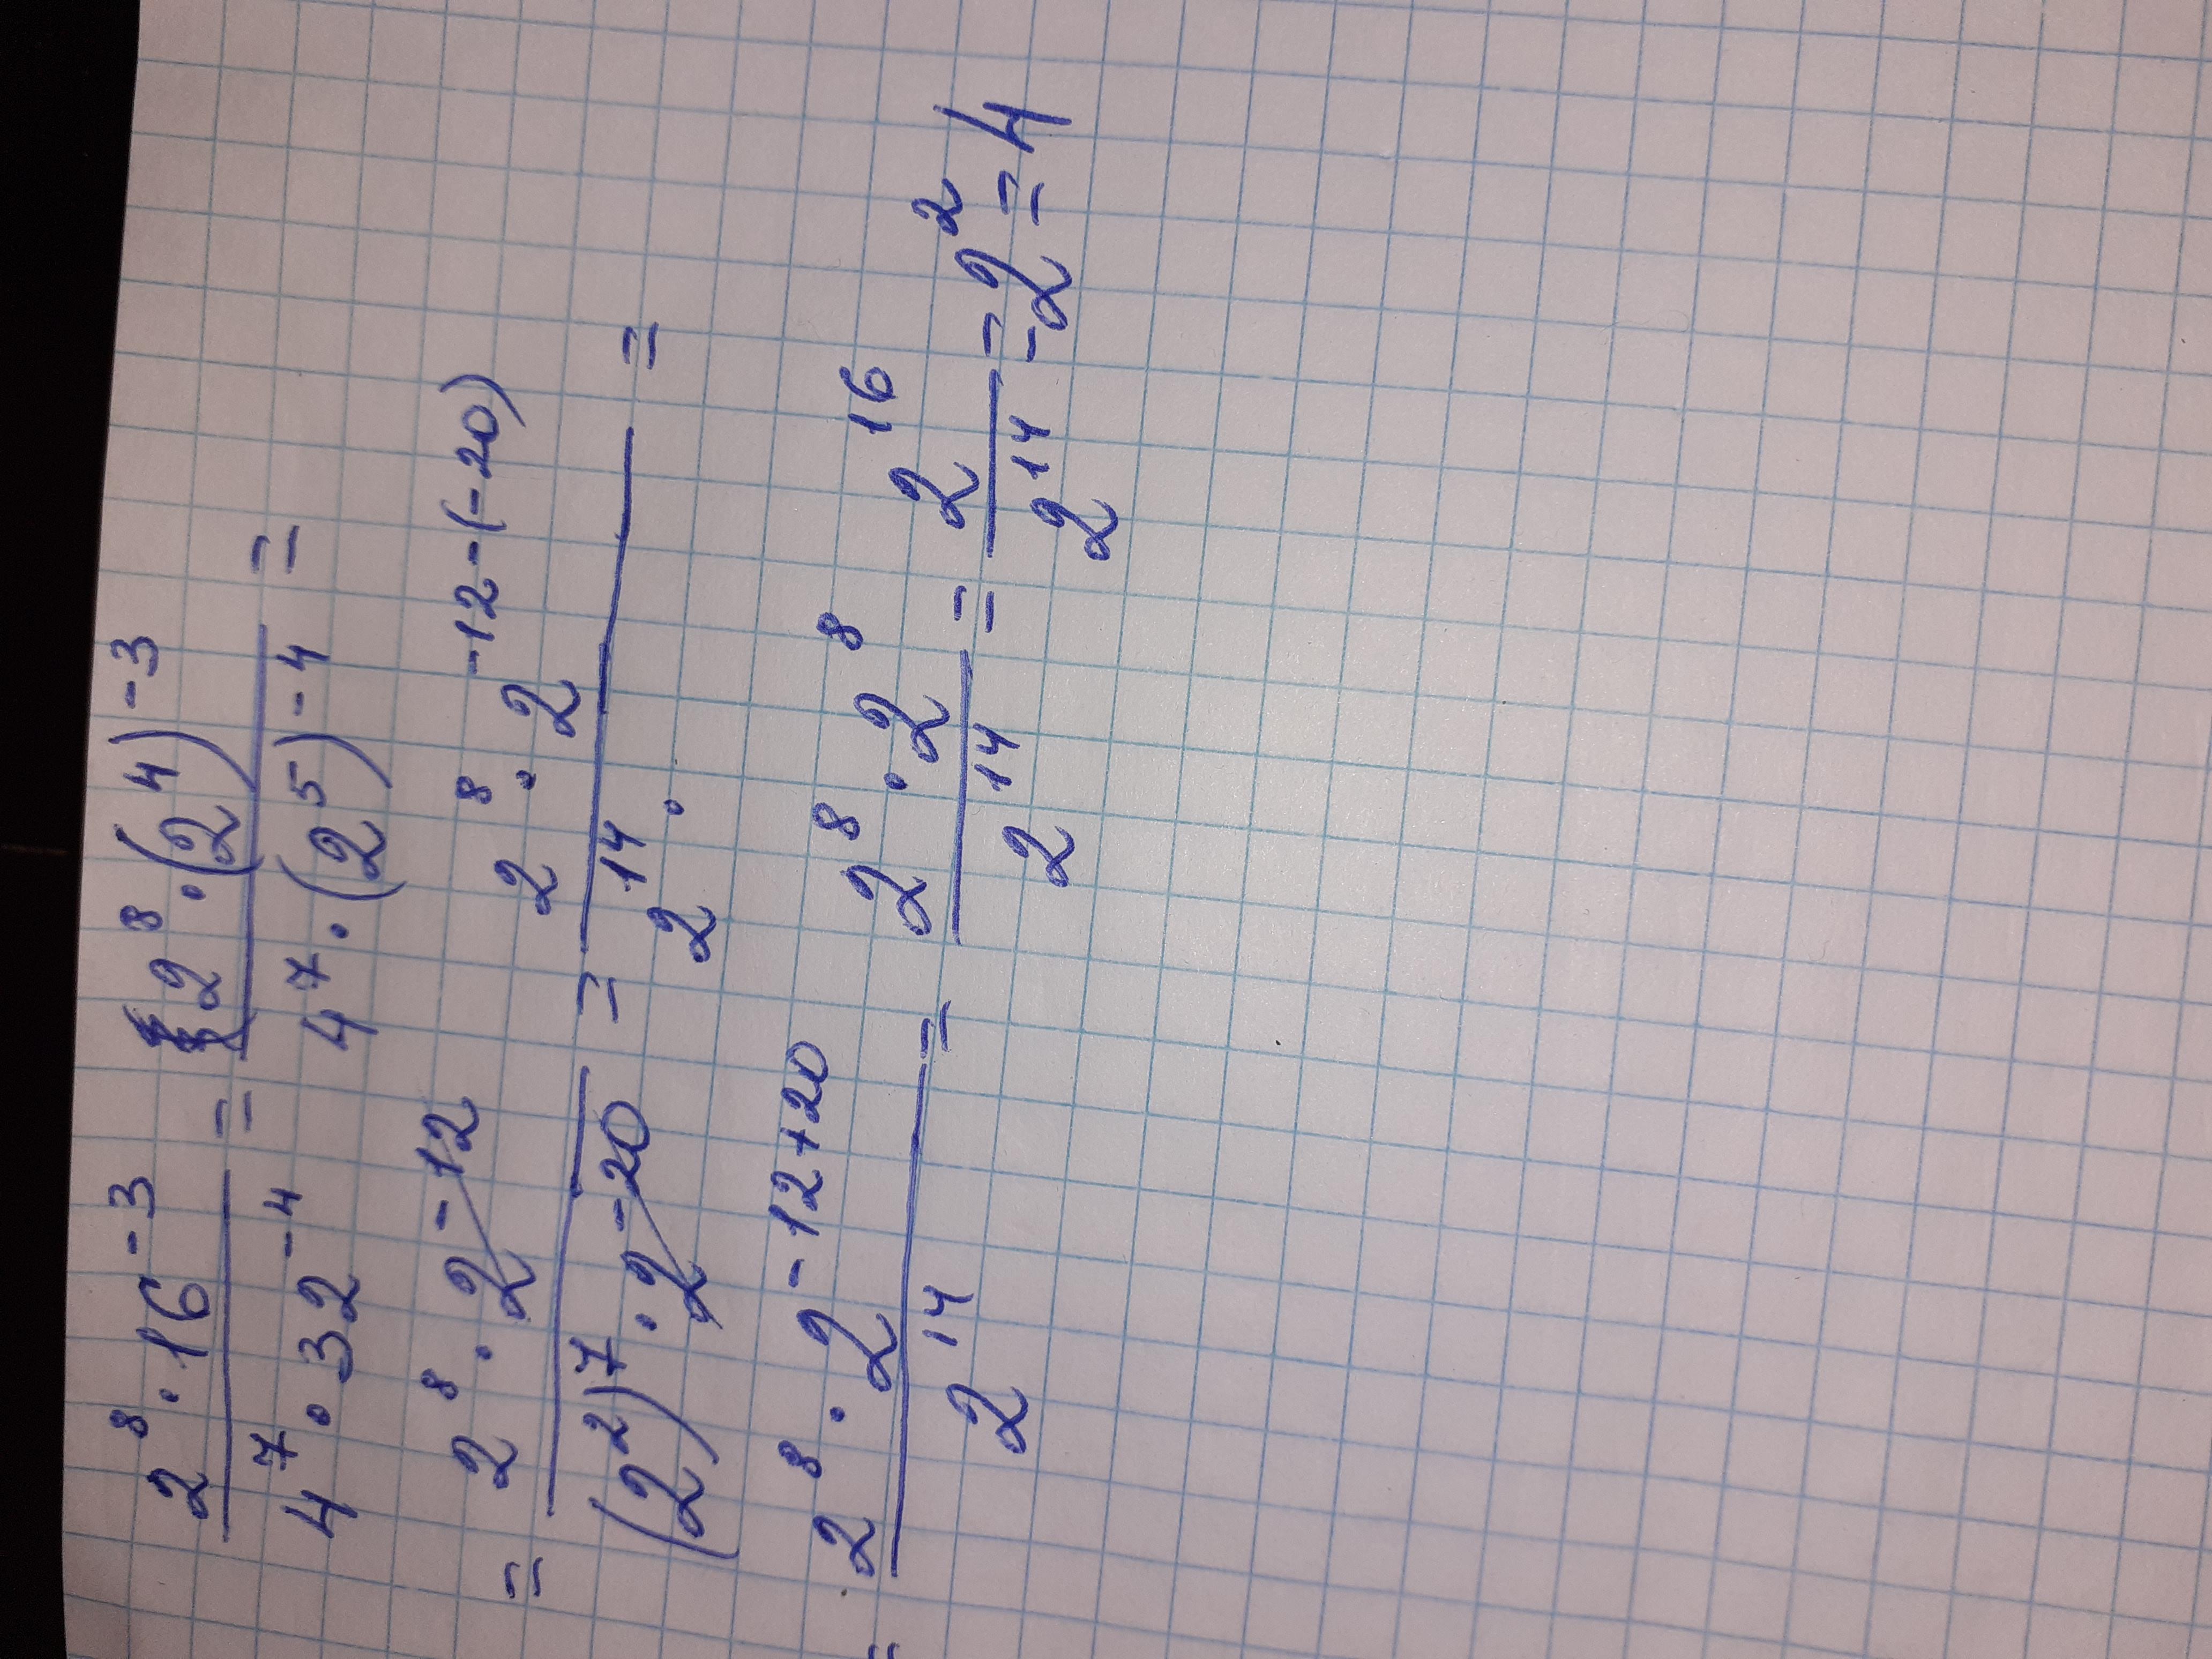 2⁸·16⁻³ / 4⁷·32⁻⁴ = 2⁸·(2⁴)⁻³ / 4⁷·(2⁵)⁻⁴ =
= 2⁸·2⁻¹² / (2²)⁷·2⁻²⁰ = 2⁸·2⁻¹²⁻⁽⁻²⁰⁾ / 2¹⁴· =
= 2⁸·2⁻¹²⁺²⁰ / 2¹⁴ = 2⁸·2⁸ / 2¹⁴ = 2¹⁶ / 2¹⁴ = 2² = 4